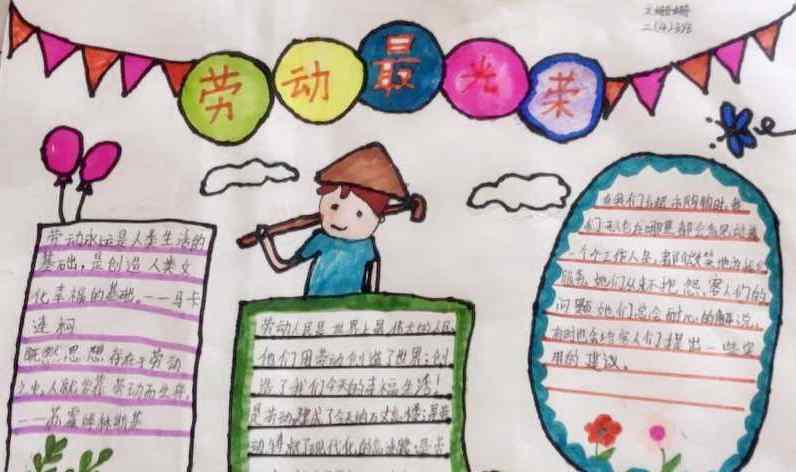 劳动最光荣
二(4)
劳动永远是人类生活的
基础，是创造人类文
化幸福的基础。——马卡
连柯
既然思想存在于劳动
之中，人就要靠劳动而生存。
——苏霍姆林斯基
劳动人民是世界上最伟大的人民
他们用劳动创造了世界；创
造了我们今天的幸福生活！
是劳动，建成了今天的万丈高楼；是劳
动，筑就了现代化的
在我们去超市购物时，我
们无论在哪里都会看见
一个个工作人员，都微笑地为
服务，她们从来不抱怨，客人们的
问题她们总会耐心的解说，
有时也会给客人们提出一些实
用的建议。